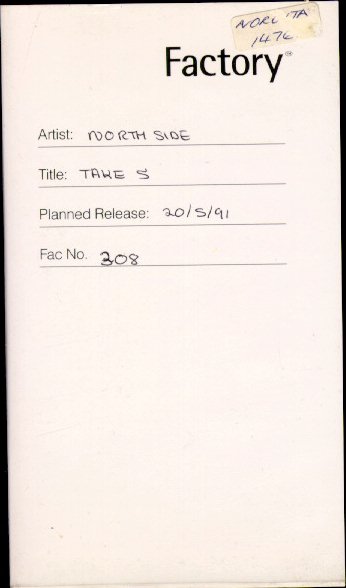 Factory®
Artist: NORTH SIDE
Title: TAKE 5
Planned Release: 20/5/91
Fac No. 308